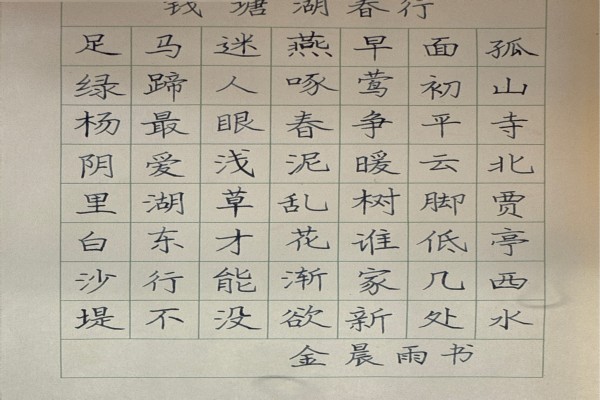 钱塘湖春行
孤山寺北贾亭西水
面初平云脚低几处
早莺争暖树谁家新
燕啄春泥乱花渐欲
迷人眼浅草才能没
马蹄最爱湖东行不
足绿杨阴里白沙堤
金晨雨书